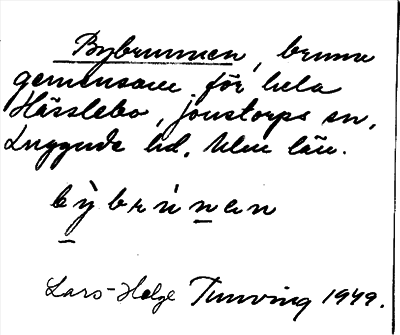 Bybrunnen, brunn
gemensam för hela
Hässlebo, Jonstorps sn,
Luggude hd, Mlm län.
bỳbrúnen
Lars-Helge Tunving 1949.